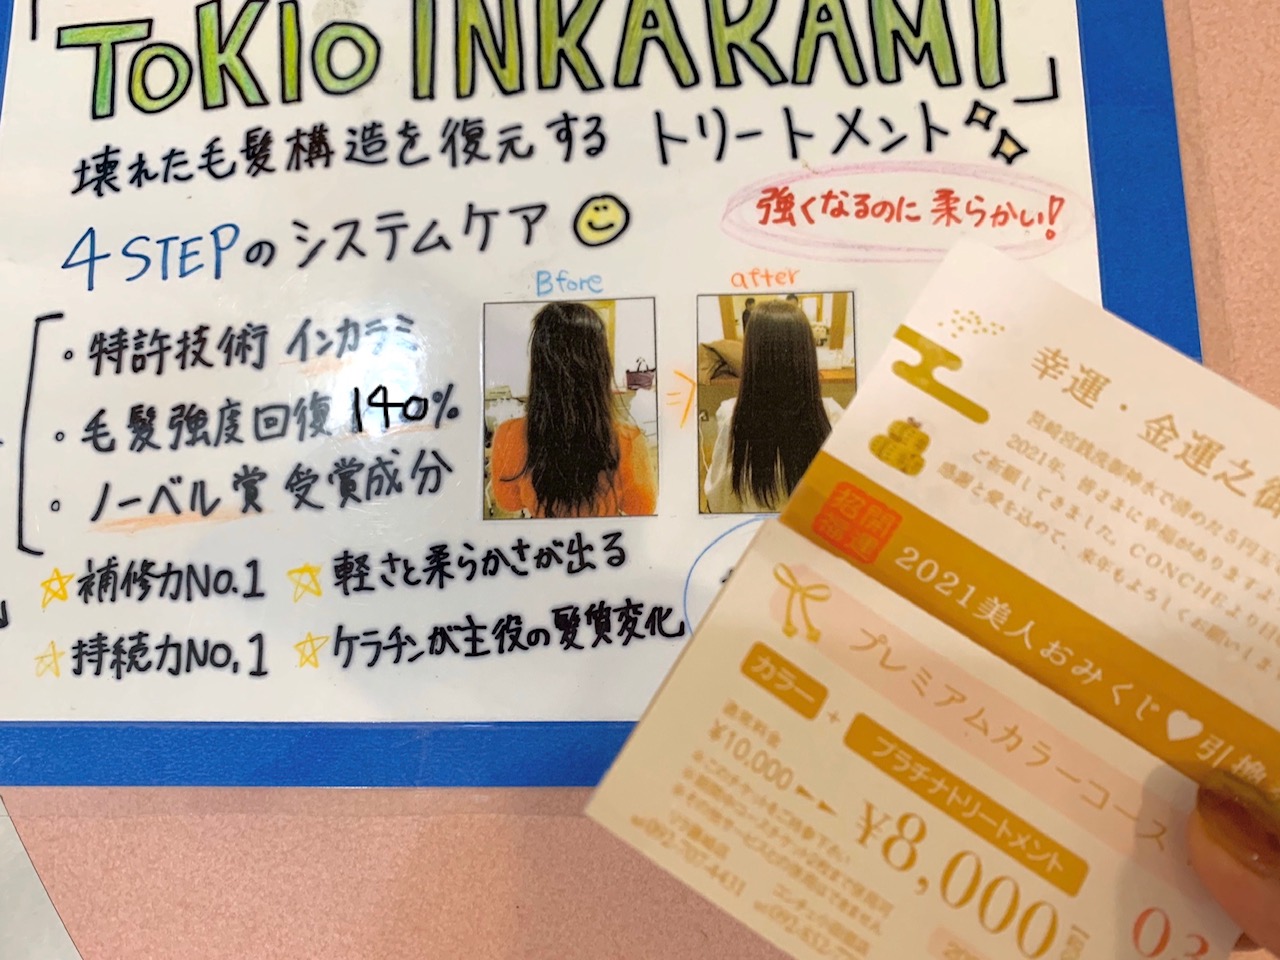 「TOKIO INKARAMI」
壊れた毛髪構造を復元する トリートメント
強くなるのに柔らかい!
4STEPのシステムケア
Bfore
after
・特許技術 インカラミ
・毛髪強度回復 140%
・ノーベル賞 受賞成分
補修力No.1
軽さと柔らかさが出る
持続力No.1
ケラチンが主役の髪質変化
幸運・金運之御
宮崎宮銭洗御神水で清めた5円玉
2021年、皆さまに幸福がありますよ
ご祈願してきました。CONCHEより日
感謝と愛を込めて、来年もよろしくお願いしま
招福 開運
2021美人おみくじ♥引換
プレミアムカラーコース
カラー + プラチナトリートメント
通常料金
¥10,000 ▶▶ ¥8,000
※このチケットをご持参下さい
092-707-4431
03